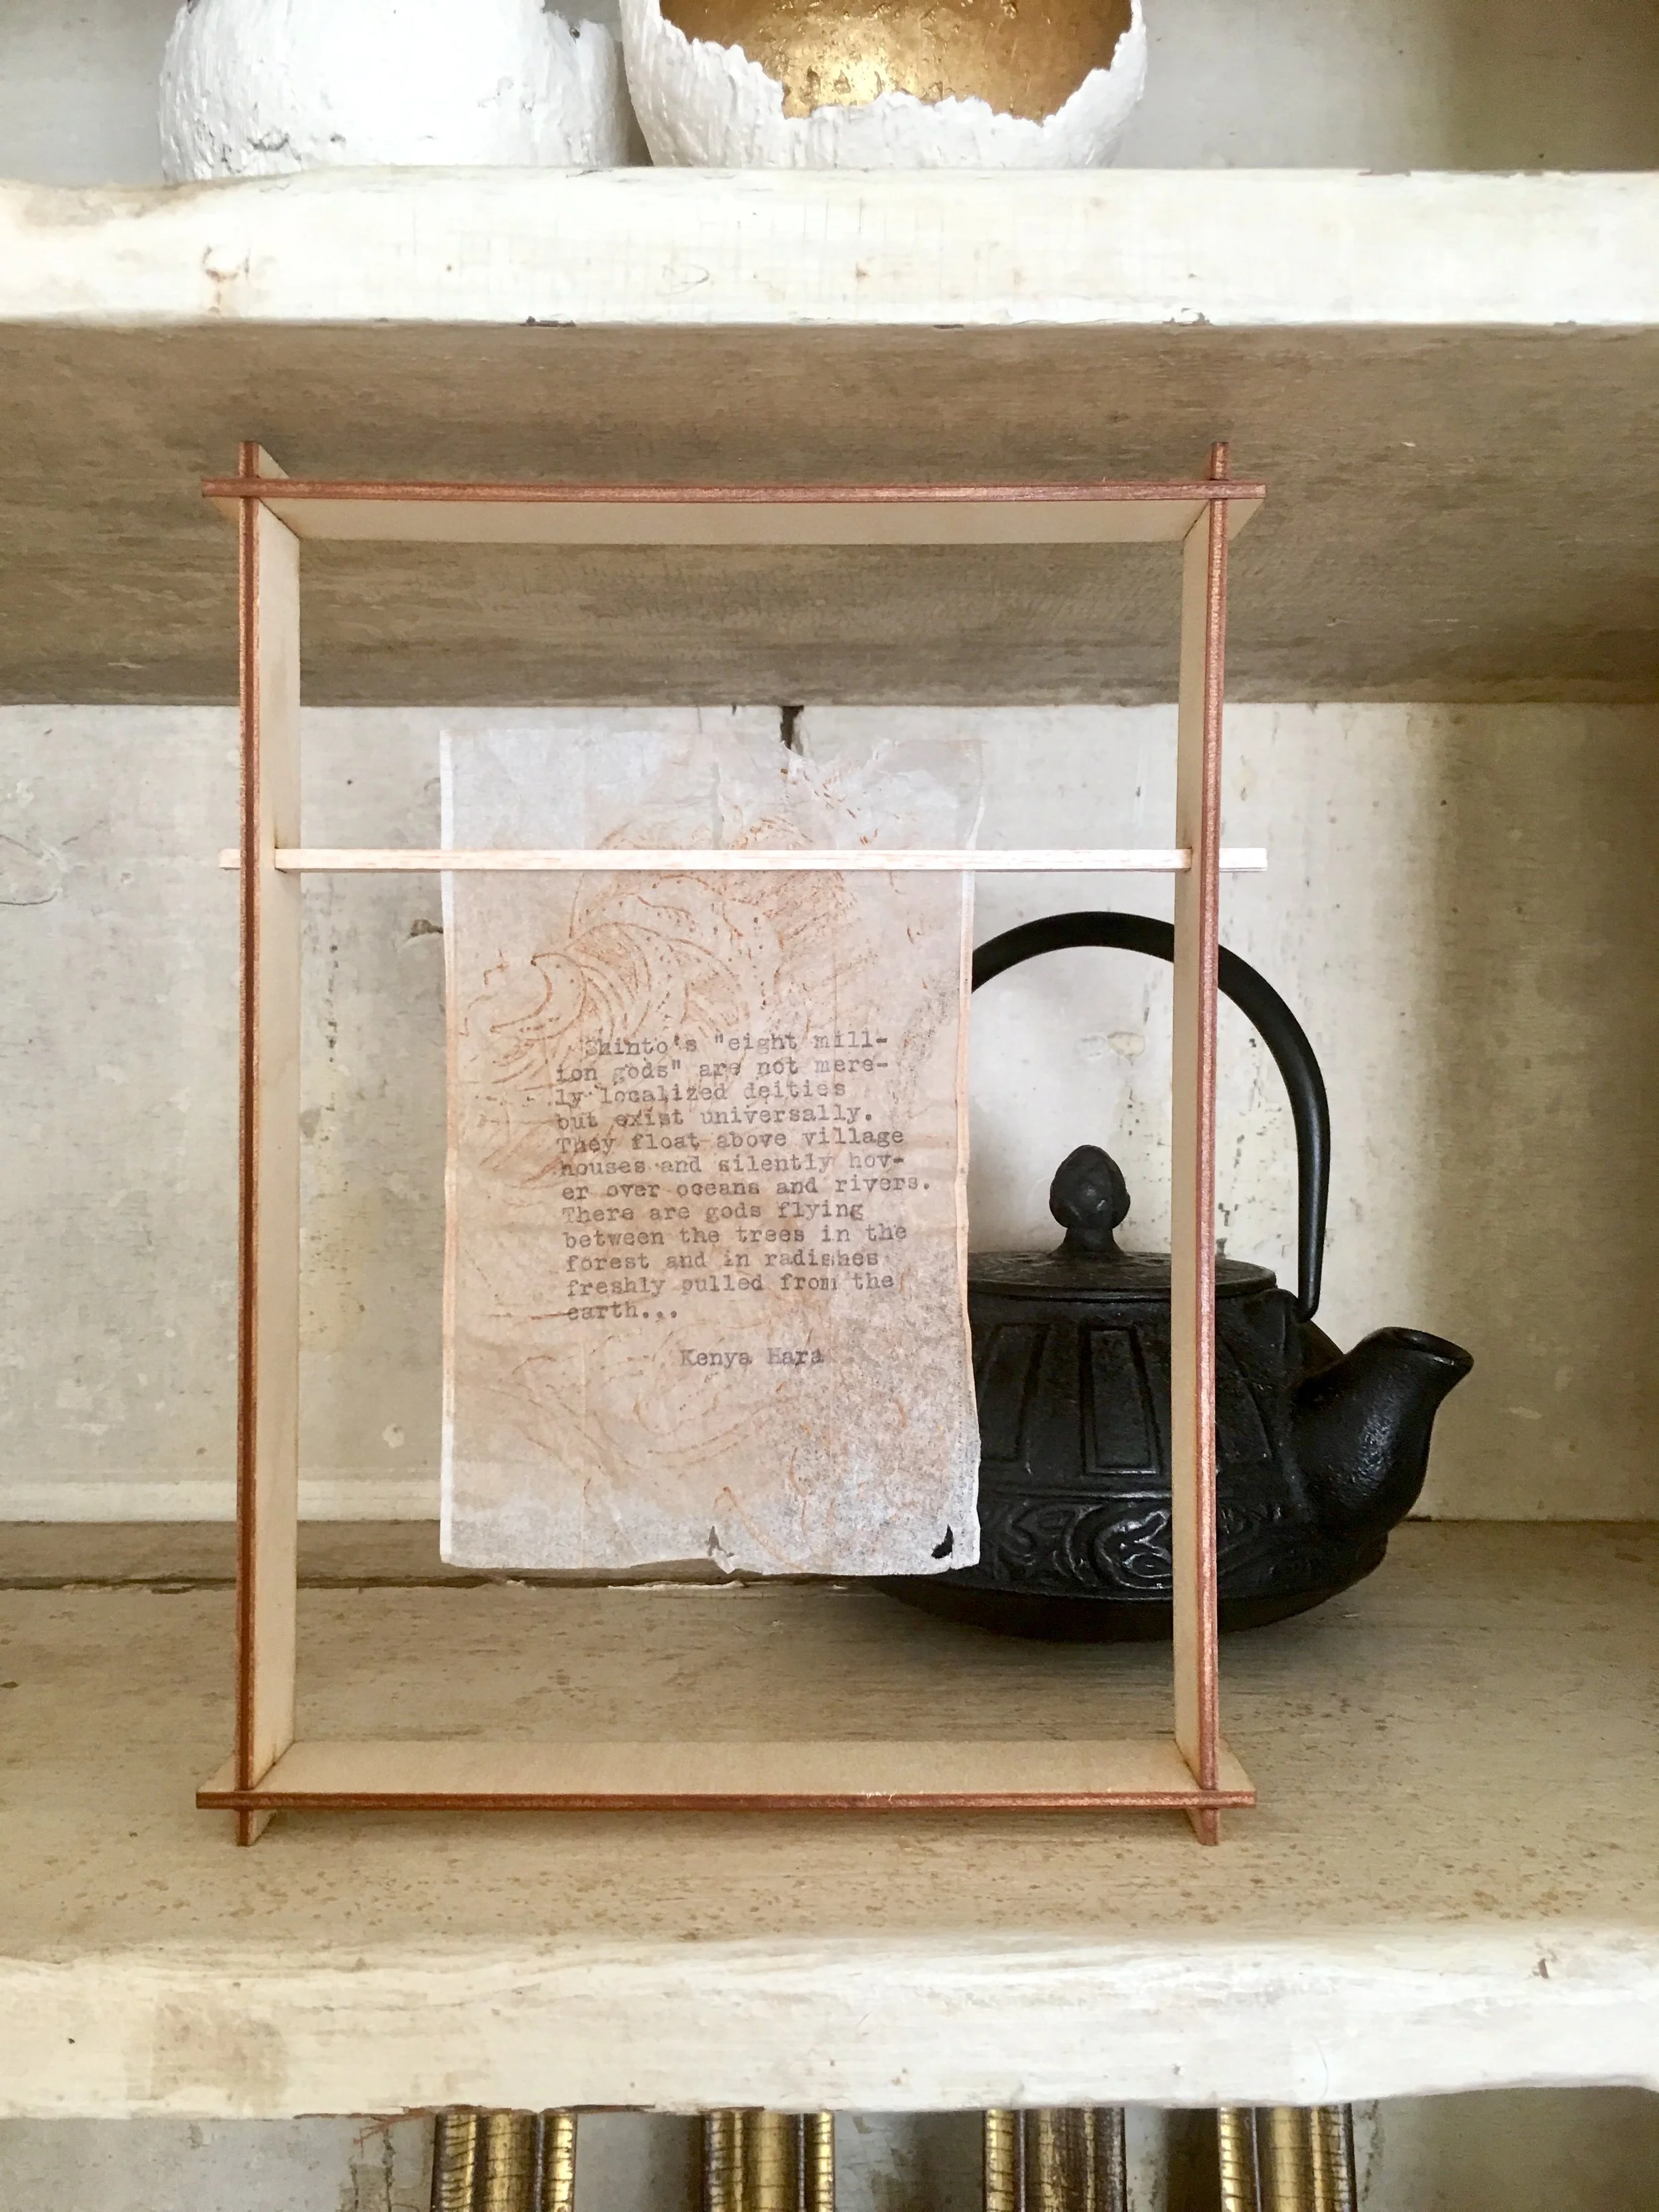 Shinto's "eight mill-
ion gods" are not mere-
ly localized deities
but exist universally.
They float above village
houses and silently hov-
er over oceans and rivers.
There are gods flying
between the trees in the
forest and in radishes
freshly pulled from the
earth...
Kenya Hara